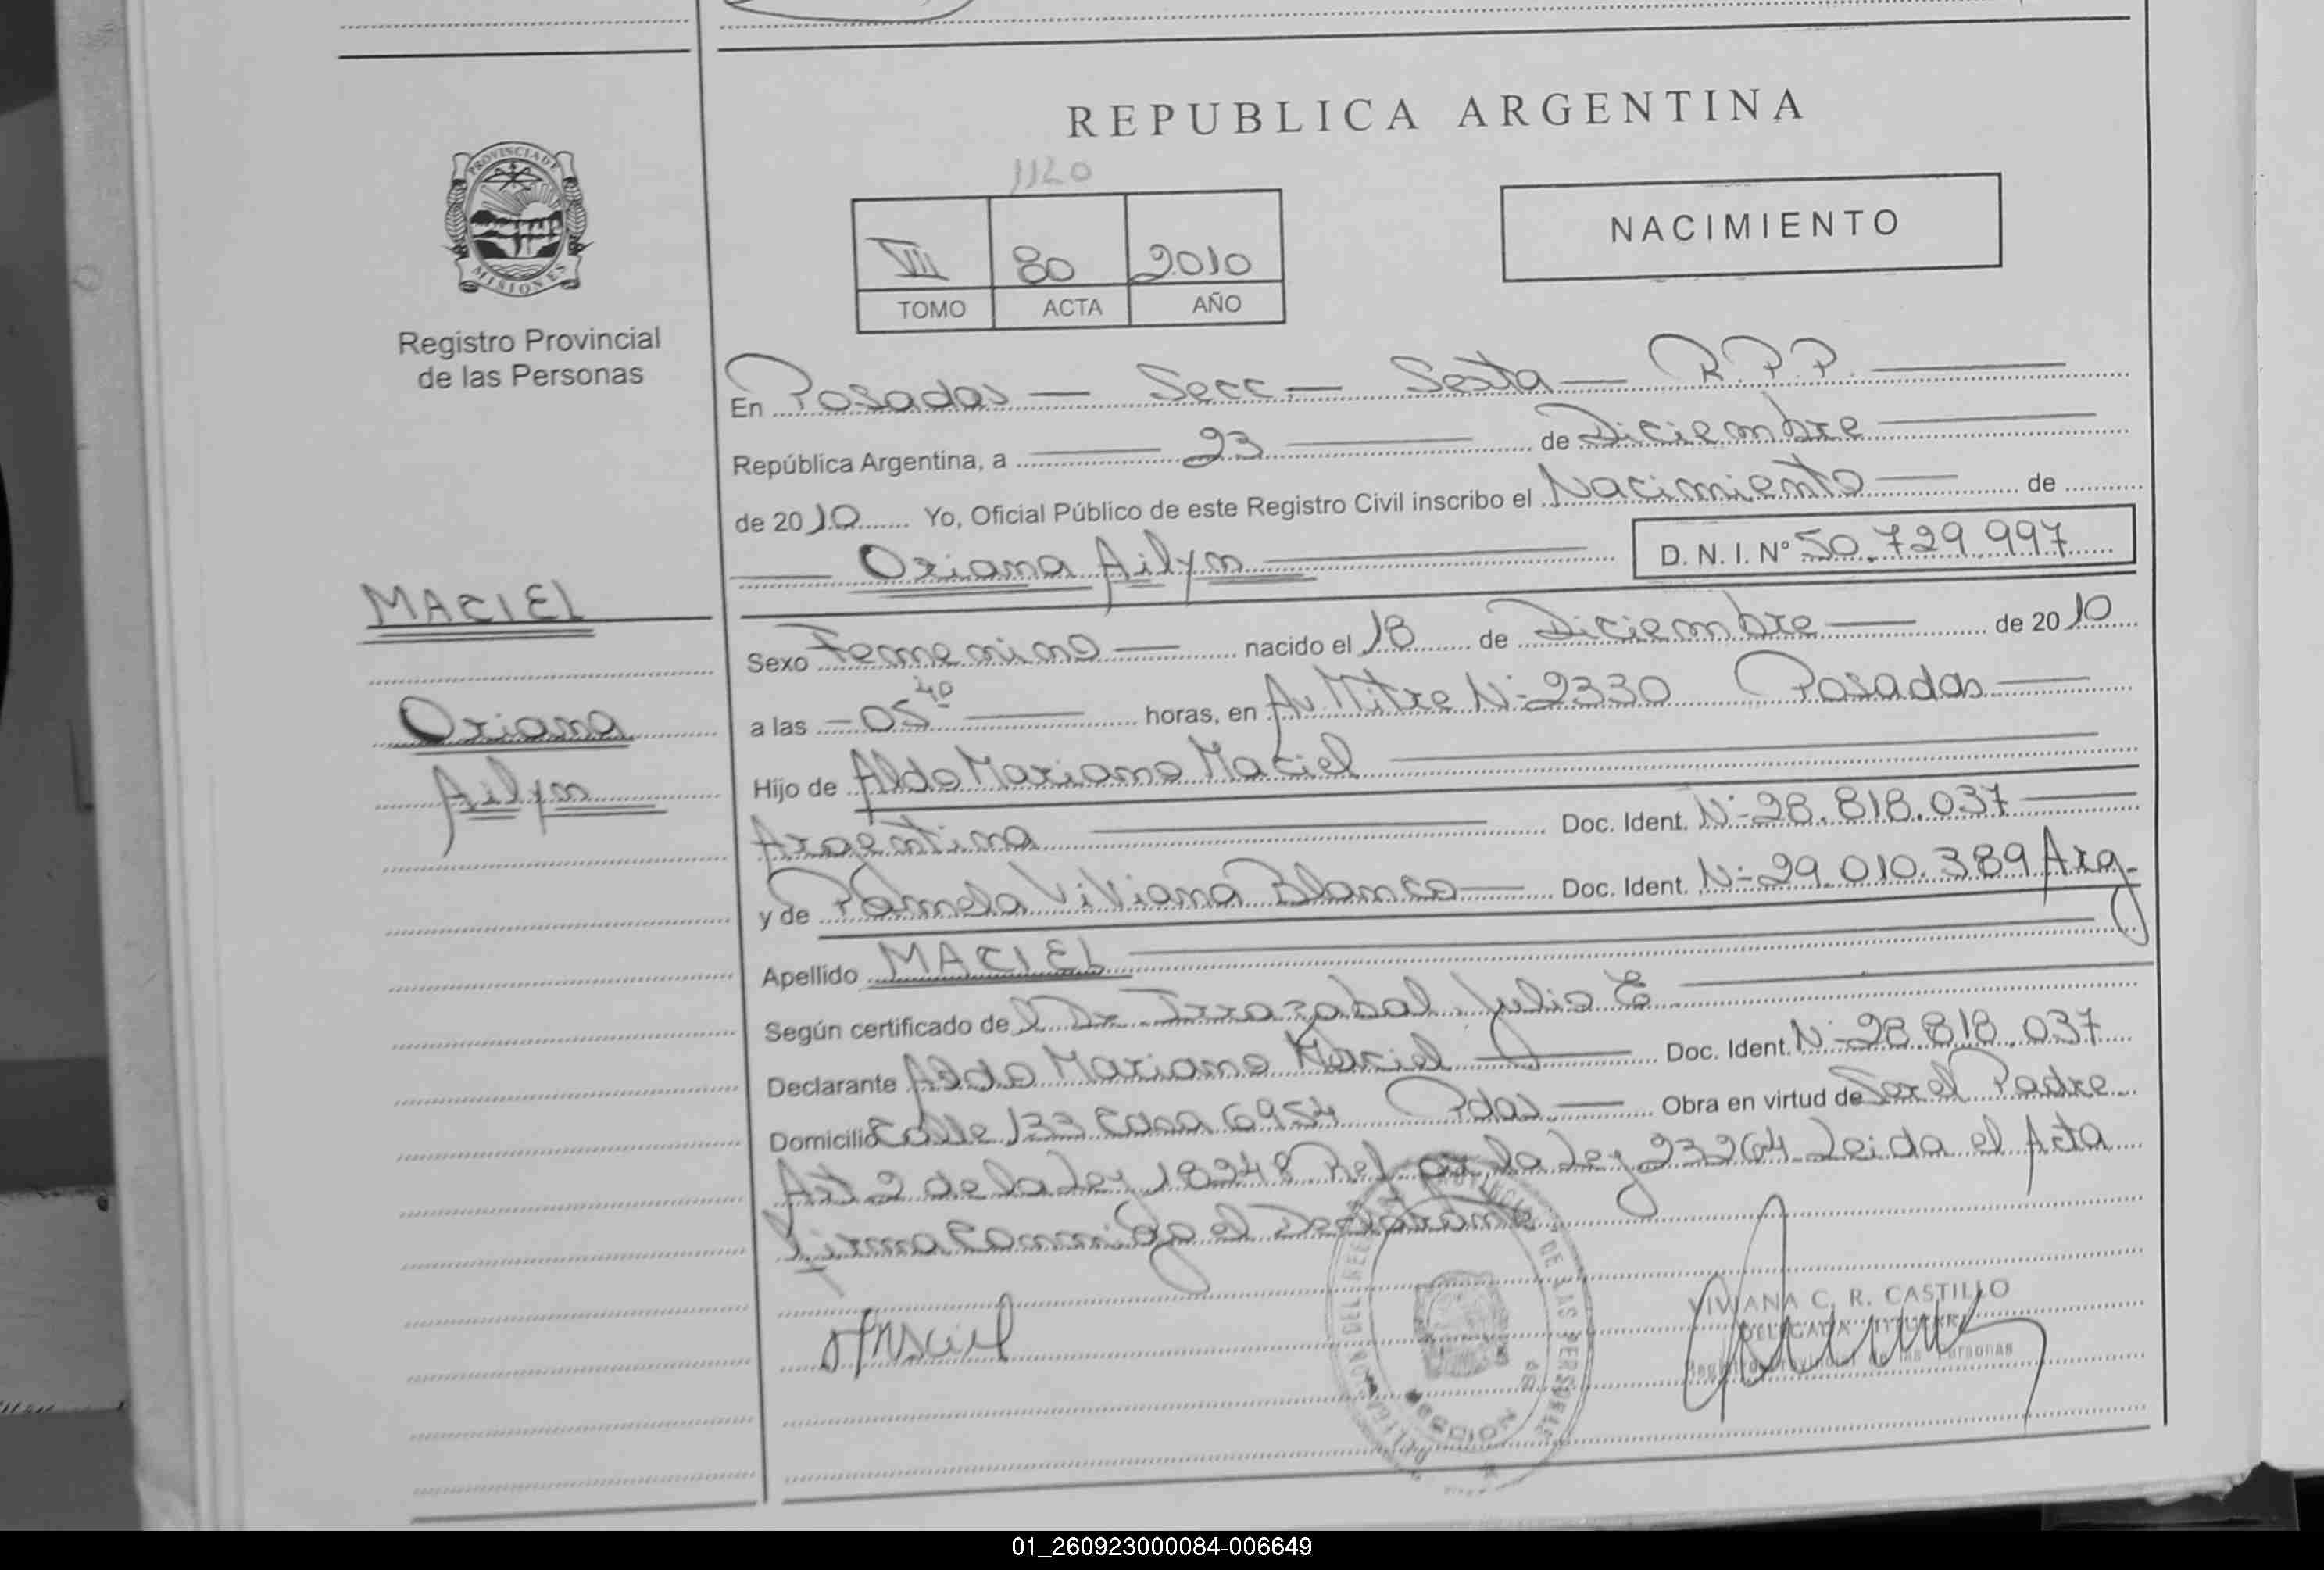 REPUBLICA ARGENTINA
1120
PROVINCIA DE
MISIONES
Registro Provincial
de las Personas
VII 80 2010
TOMO ACTA AÑO
NACIMIENTO
En Posadas — Secc. — Sexta — R.P.P.
República Argentina, a 23 de Diciembre
de 2010 Yo, Oficial Público de este Registro Civil inscribo el Nacimiento de
Oriana Ailym D. N. I. Nº 50.729.997
MACIEL
Oriana
Ailym
Sexo Femenino nacido el 18 de Diciembre de 2010
a las 05 40 horas, en Av Mitre Nº 2330 Posadas
Hijo de Aldo Mariano Maciel
Argentina Doc. Ident. Nº 28.818.037
y de Pamela Viviana Blanco Doc. Ident. Nº 29.010.389 Arg.
Apellido MACIEL
Según certificado del Dr Irrazabal Julio E
Declarante Aldo Mariano Maciel Doc. Ident. Nº 28.818.037
Domicilio Calle 133 Casa 6954 Pdas Obra en virtud de Ser el Padre
Art 2 de la Ley 18248 Ref. por la Ley 23264 Leida el Acta
firma conmigo el Declarante
VIVIANA C. R. CASTILLO
DELEGADA TITULAR
Registro Provincial de las Personas
01_260923000084-006649